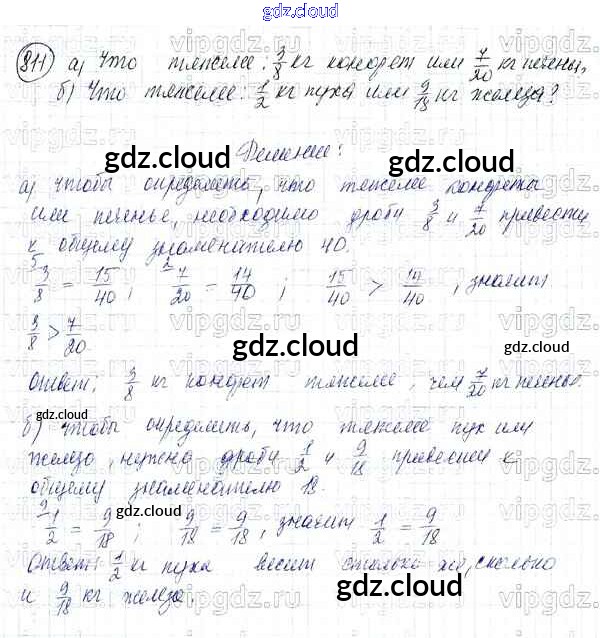 gdz.cloud
811) а) Что тяжелее: 3/8 кг конфет или 7/20 кг печенья,
б) Что тяжелее: 1/2 кг пуха или 9/18 кг железа?
gdz.cloud
Решение:
gdz.cloud
а) чтобы определить, что тяжелее конфеты
или печенье, необходимо дроби 3/8 и 7/20 привести
к общему знаменателю 40.
5 3/8 = 15/40; 2 7/20 = 14/40; 15/40 > 14/40, значит
3/8 > 7/20.
gdz.cloud
Ответ: 3/8 кг конфет тяжелее, чем 7/20 кг печенья.
gdz.cloud
gdz.cloud
б) чтобы определить, что тяжелее пух или
железо, нужно дроби 1/2 и 9/18 привести к
общему знаменателю 18.
gdz.cloud
9 1/2 = 9/18; 9/18 = 9/18, значит 1/2 = 9/18
Ответ: 1/2 кг пуха весит столько же, сколько
и 9/18 кг железа.
gdz.cloud
gdz.cloud